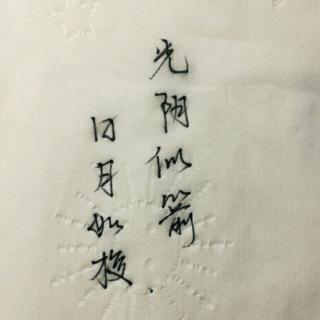 光阴似箭
日月如梭.